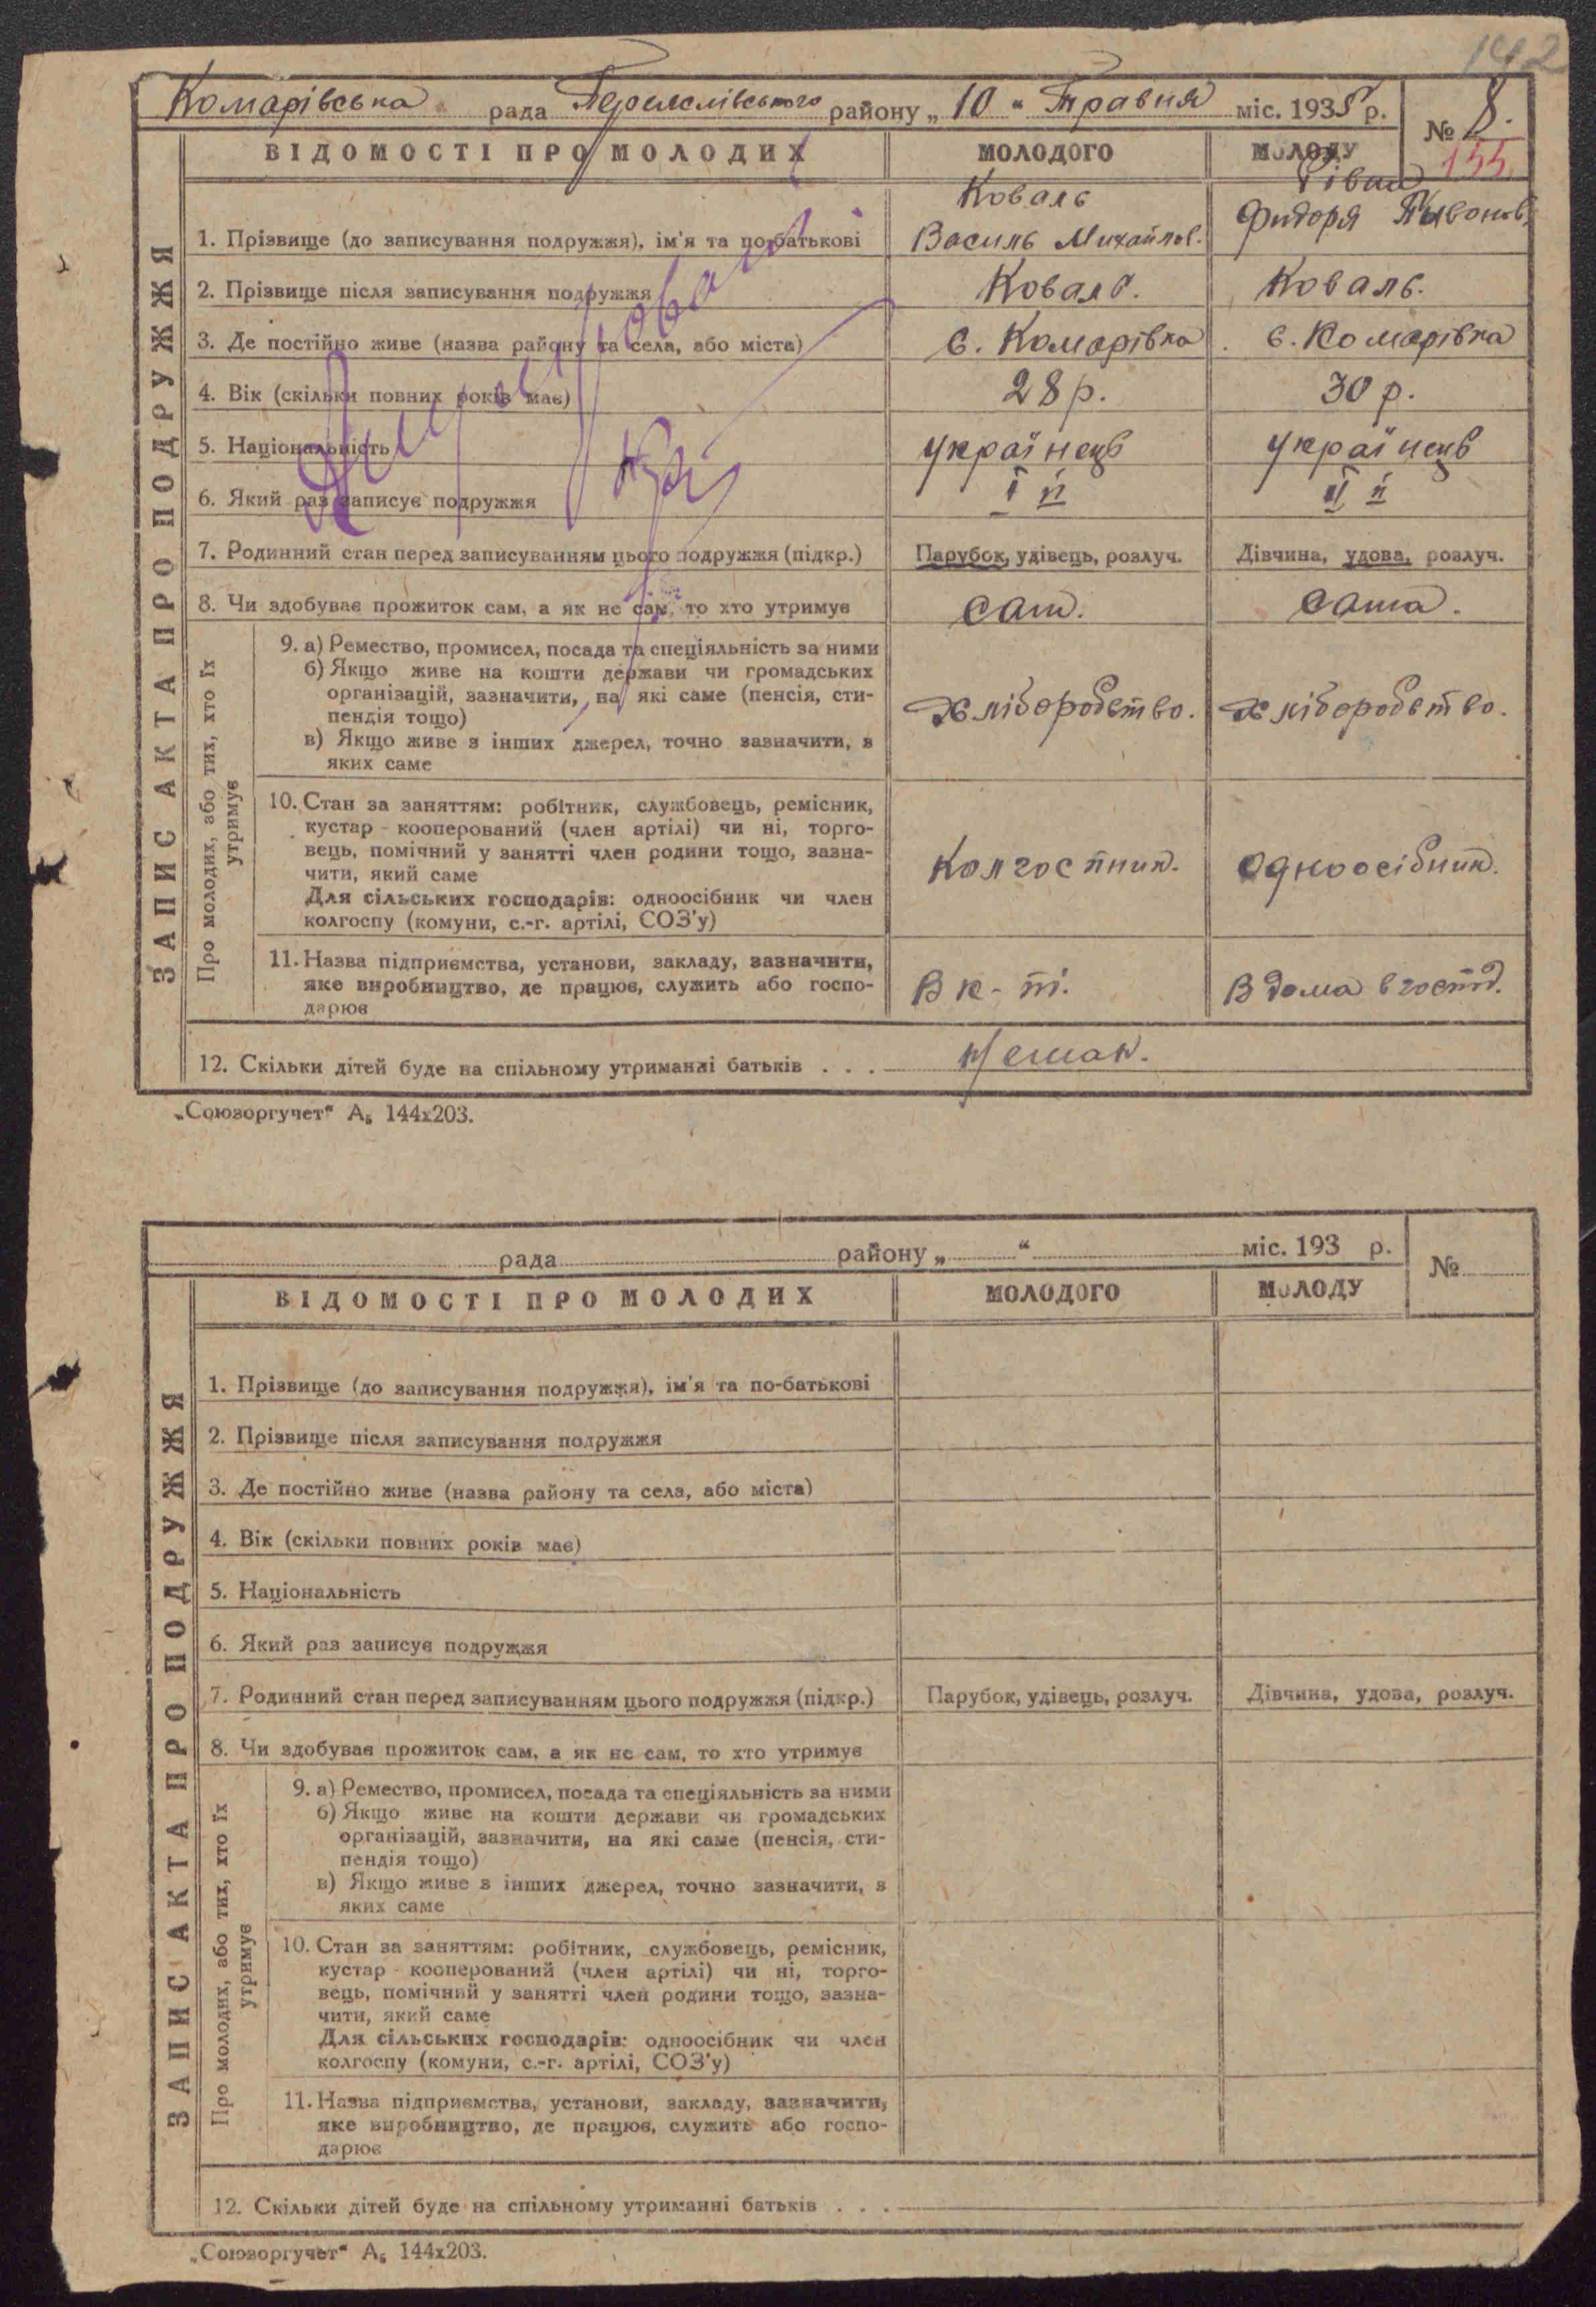 142
Комарівська рада району „ 10 “ Травня міс. 1935 р. № 8.
155
ВІДОМОСТІ ПРО МОЛОДИХ МОЛОДОГО МОЛОДУ
ЗАПИС АКТА ПРО ПОДРУЖЖЯ
Коваль
1. Прізвище (до записування подружжя), ім'я та по-батькові Василь Михайлов. Фидоря
2. Прізвище після записування подружжя Коваль. Коваль.
3. Де постійно живе (назва району та села, або міста) с. Комарівка с. Комарівка
4. Вік (скільки повних років має) 28 р. 30 р.
5. Національність українець українець
6. Який раз записує подружжя І й ІІ й
7. Родинний стан перед записуванням цього подружжя (підкр.) Парубок, удівець, розлуч. Дівчина, удова, розлуч.
8. Чи здобуває прожиток сам, а як не сам, то хто утримує сам. сама.
Про молодих, або тих, хто їх утримує
9. а) Ремество, промисел, посада та спеціяльність за ними
б) Якщо живе на кошти держави чи громадських
організацій, зазначити, на які саме (пенсія, сти-
пендія тощо) хліборобство. хліборобство.
в) Якщо живе з інших джерел, точно зазначити, з
яких саме
10. Стан за заняттям: робітник, службовець, ремісник,
кустар - кооперований (член артілі) чи ні, торго-
вець, помічний у занятті член родини тощо, зазна-
чити, який саме Колгоспник. Одноосібник.
Для сільських господарів: одноосібник чи член
колгоспу (комуни, с.-г. артілі, СОЗ'у)
11. Назва підприємства, установи, закладу, зазначити,
яке виробництво, де працює, служить або госпо- В к-пі. В дома в госпд.
дарює
12. Скільки дітей буде на спільному утриманні батьків . . . Немає.
„Союзоргучет“ А₅ 144х203.
рада району „ “ міс. 193 р. №
ВІДОМОСТІ ПРО МОЛОДИХ МОЛОДОГО МОЛОДУ
ЗАПИС АКТА ПРО ПОДРУЖЖЯ
1. Прізвище (до записування подружжя), ім'я та по-батькові
2. Прізвище після записування подружжя
3. Де постійно живе (назва району та села, або міста)
4. Вік (скільки повних років має)
5. Національність
6. Який раз записує подружжя
7. Родинний стан перед записуванням цього подружжя (підкр.) Парубок, удівець, розлуч. Дівчина, удова, розлуч.
8. Чи здобуває прожиток сам, а як не сам, то хто утримує
Про молодих, або тих, хто їх утримує
9. а) Ремество, промисел, посада та спеціяльність за ними
б) Якщо живе на кошти держави чи громадських
організацій, зазначити, на які саме (пенсія, сти-
пендія тощо)
в) Якщо живе з інших джерел, точно зазначити, з
яких саме
10. Стан за заняттям: робітник, службовець, ремісник,
кустар - кооперований (член артілі) чи ні, торго-
вець, помічний у занятті член родини тощо, зазна-
чити, який саме
Для сільських господарів: одноосібник чи член
колгоспу (комуни, с.-г. артілі, СОЗ'у)
11. Назва підприємства, установи, закладу, зазначити,
яке виробництво, де працює, служить або госпо-
дарює
12. Скільки дітей буде на спільному утриманні батьків . . .
„Союзоргучет“ А₅ 144х203.